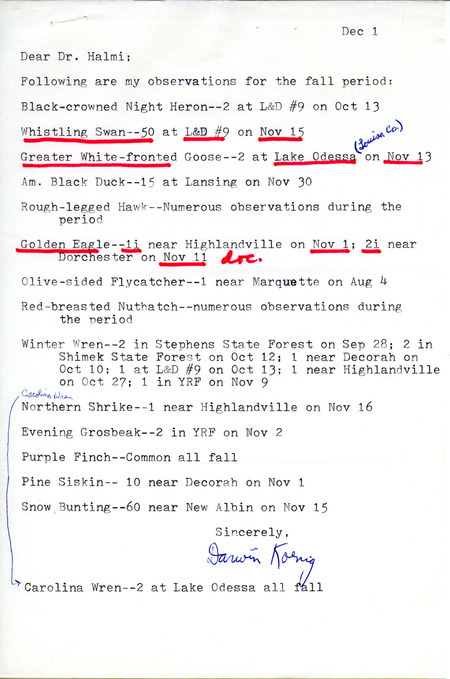 Dec 1
Dear Dr. Halmi;
Following are my observations for the fall period:
Black-crowned Night Heron--2 at L&D #9 on Oct 13
Whistling Swan--50 at L&D #9 on Nov 15
(Louisa Co.)
Greater White-fronted Goose--2 at Lake Odessa on Nov 13
Am. Black Duck--15 at Lansing on Nov 30
Rough-legged Hawk--Numerous observations during the
period
Golden Eagle--1i near Highlandville on Nov 1; 2i near
Dorchester on Nov 11 doc.
Olive-sided Flycatcher--1 near Marquette on Aug 4
Red-breasted Nuthatch--numerous observations during
the period
Winter Wren--2 in Stephens State Forest on Sep 28; 2 in
Shimek State Forest on Oct 12; 1 near Decorah on
Oct 10; 1 at L&D #9 on Oct 13; 1 near Highlandville
on Oct 27; 1 in YRF on Nov 9
Carolina Wren
Northern Shrike--1 near Highlandville on Nov 16
Evening Grosbeak--2 in YRF on Nov 2
Purple Finch--Common all fall
Pine Siskin-- 10 near Decorah on Nov 1
Snow Bunting--60 near New Albin on Nov 15
Sincerely,
Darwin Koenig
Carolina Wren--2 at Lake Odessa all fall